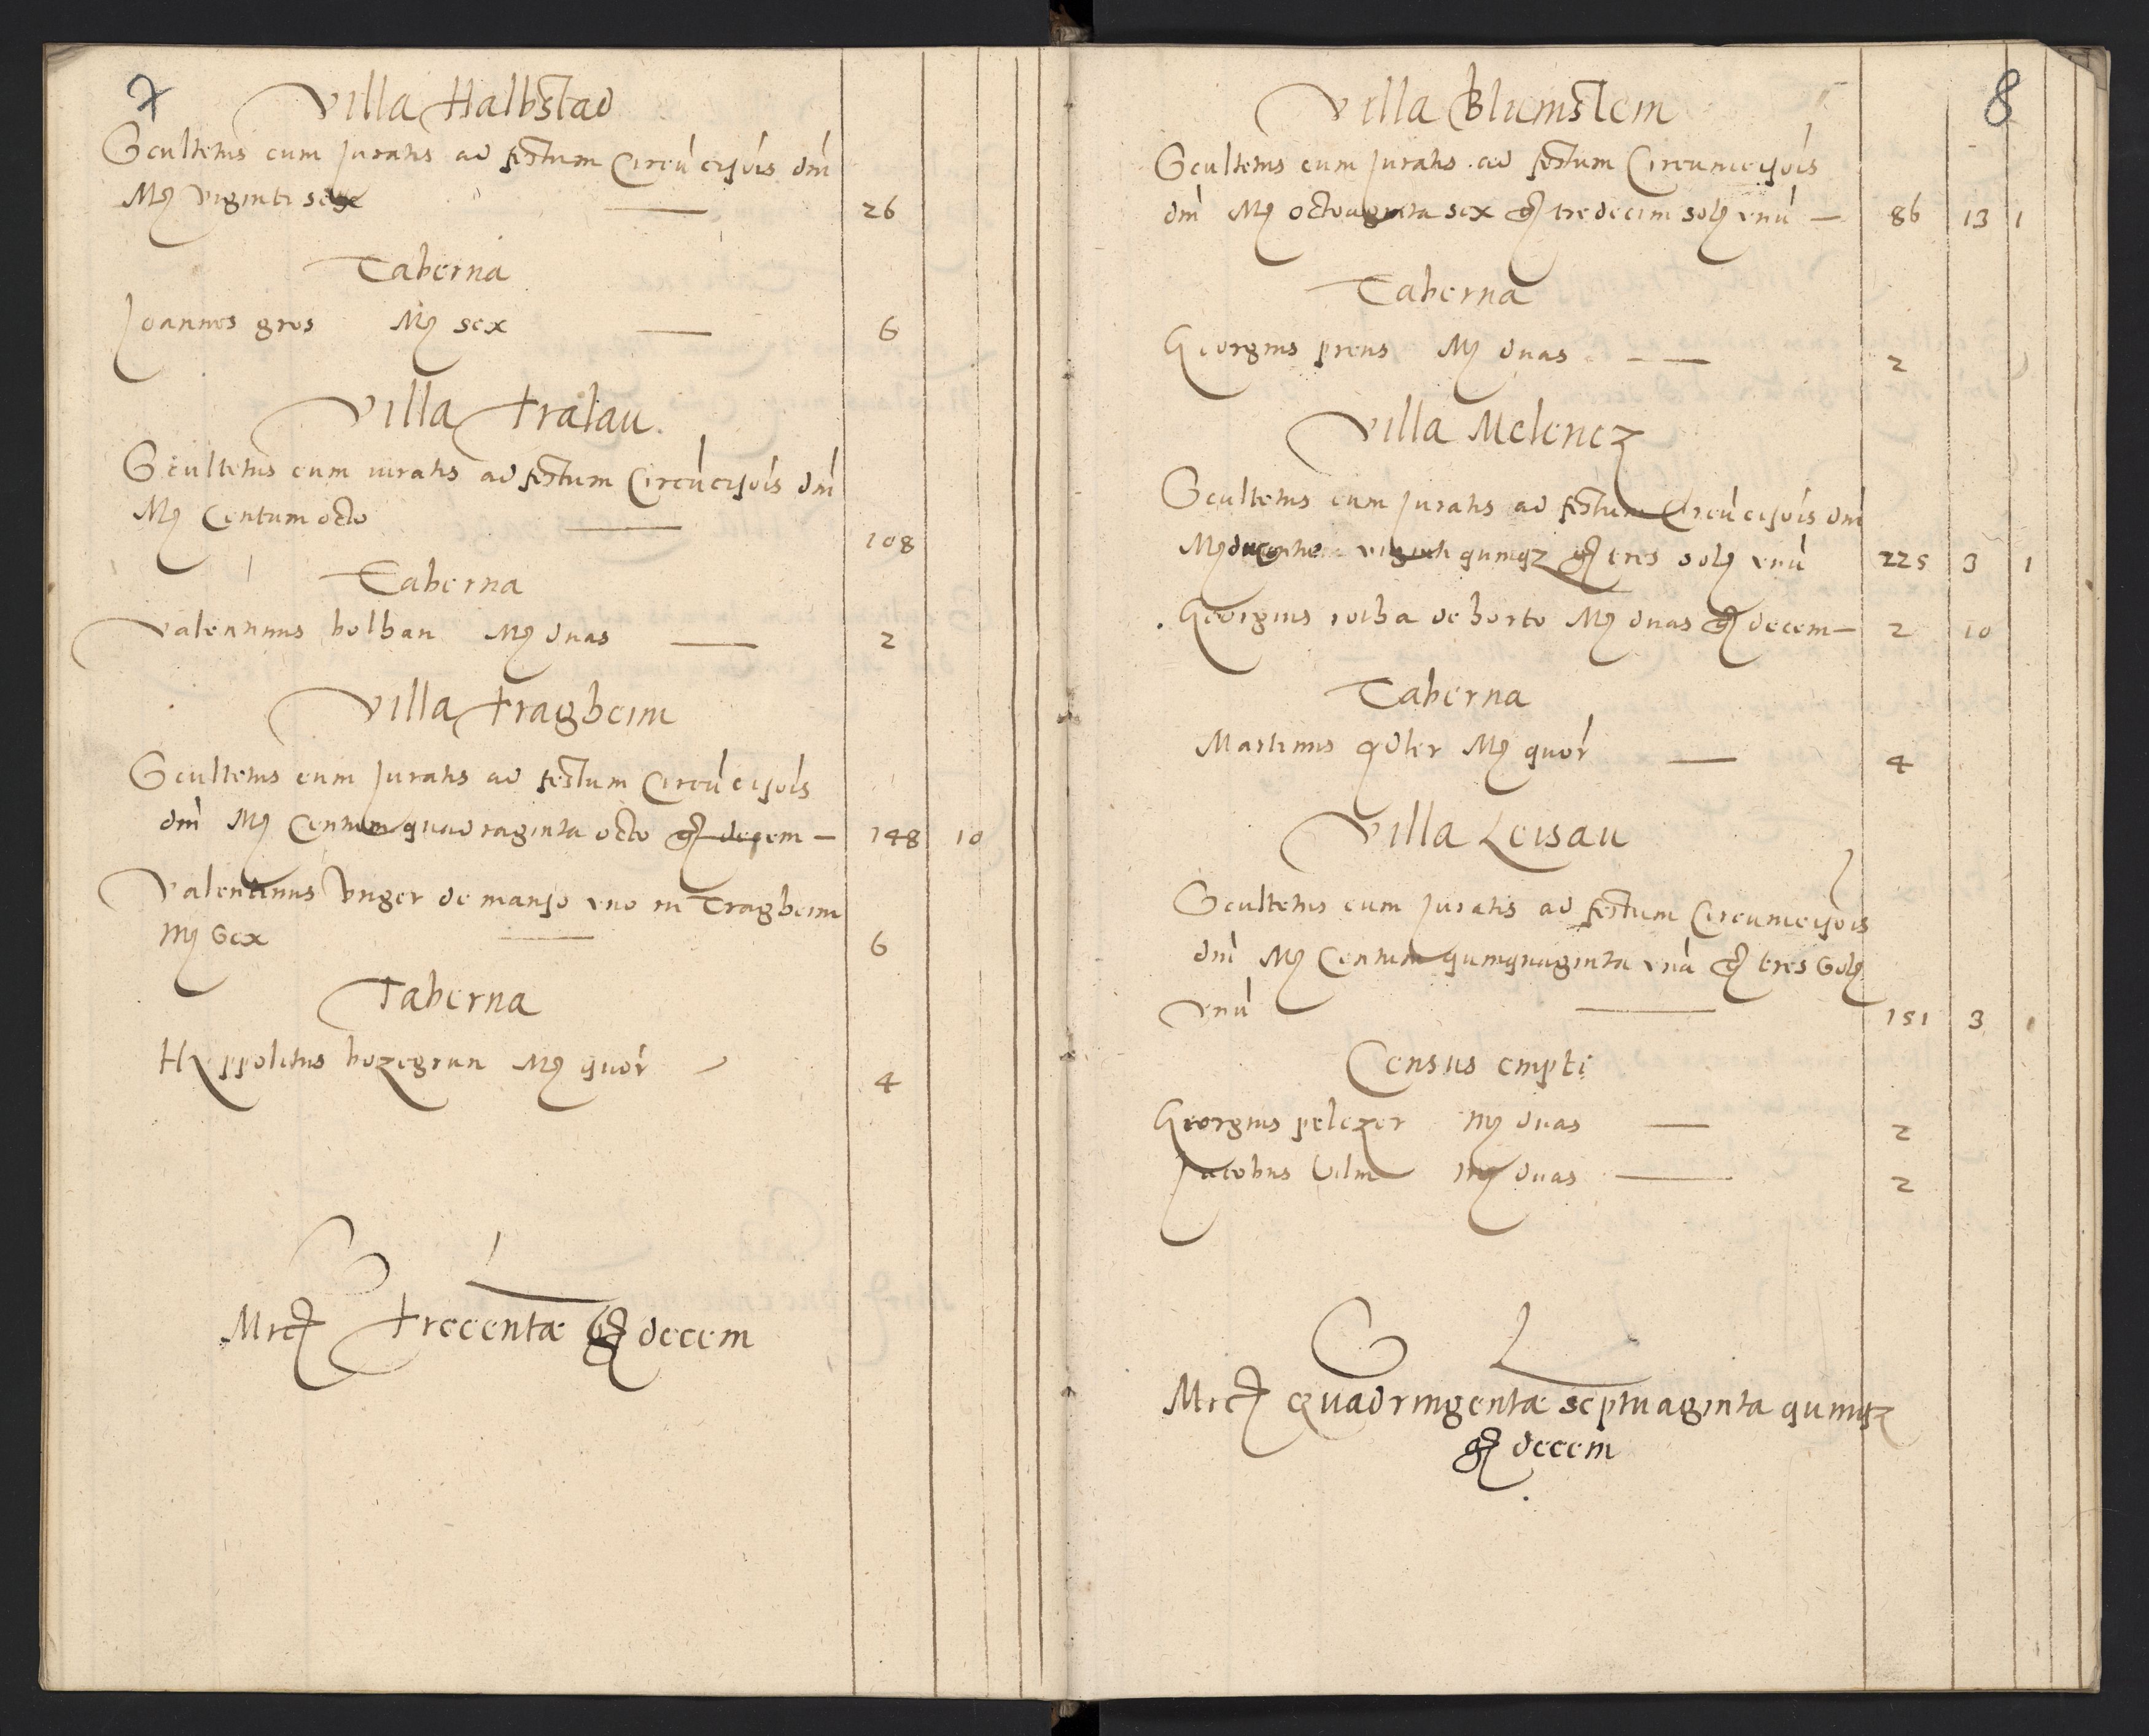 7
Villa Halbstad
Scultetus cum Juratis ad festum Circūcisiōis dn̄i
Mṛ viginti sex — 26
Taberna
Joannes gros Mṛ sex — 6
Villa Tralau.
Scultetus cum iuratis ad festum Circūcisiōis dn̄i
Mṛ Centum octo — 108
Taberna
Valentinus holhan Mṛ duas — 2
Villa Tragheim
Scultetus cum Juratis ad festum Circūcisiōis
dn̄i Mṛ Centum quadraginta octo gṛ decem — 148 10
Valentinus Vnger de manso vno in Tragheim
Mṛ Sex — 6
Taberna
Hyppolitus hozegrun Mṛ quor̄ 4
S
Mrcṛ Trecentæ gṛ decem
8
Villa Blumstein
Scultetus cum Juratis ad festum Circumcisiōis
dn̄i Mṛ octoaginta sex gṛ tredecim solṛ vnū — 86 13 1
Taberna
Georgius preus Mṛ duas — 2
Villa Melencz
Scultetus cum Juratis ad festum Circūcisiōis dn̄i
Mṛ ducentas viginti quinqz gṛ tres solṛ vnū 225 3 1
Georgius rotha de horto Mṛ duas gṛ decem — 2 10
Taberna
Martinus Mṛ quor̄ — 4
Villa Leisau
Scultetus cum Juratis ad festum Circumcisiōis
dn̄i Mṛ Centum quinquaginta vnā gṛ tres Solṛ
vnū — 151 3 1
Census empti
Georgius pelczer Mṛ duas — 2
Jacobus Vilm Mṛ duas — 2
S
Mrcṛ quadringentæ septuaginta quinqz
gṛ decem